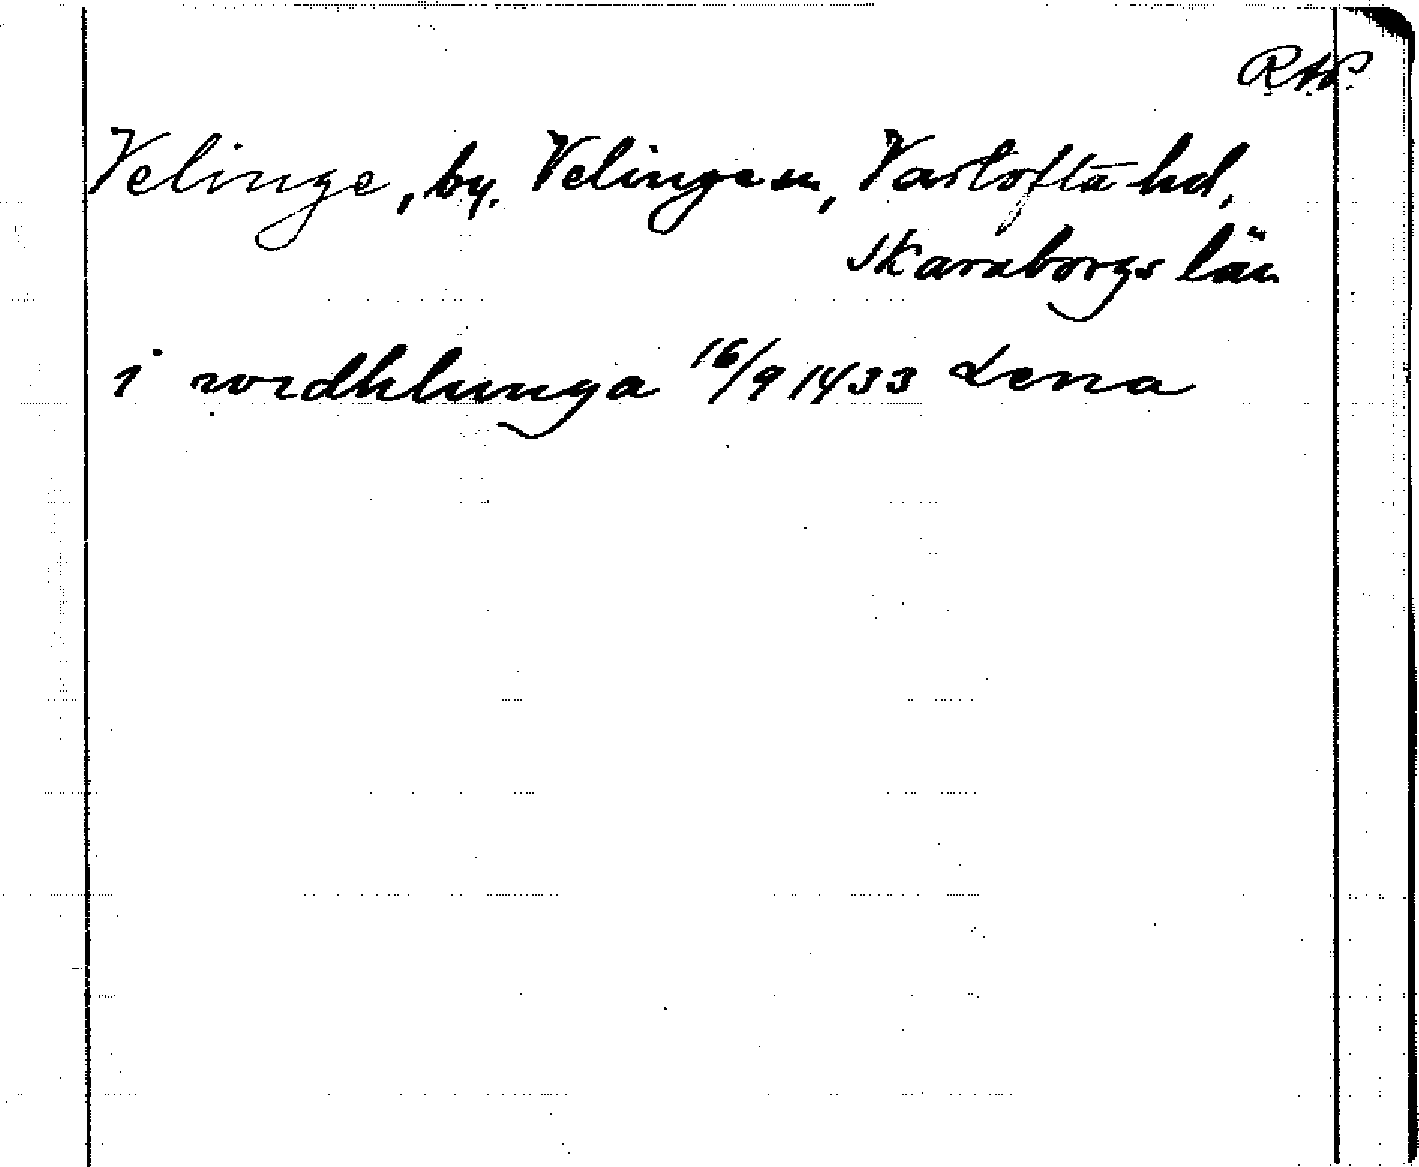 RAP.
Velinge, by. Velinge sn, Vartofta hd,
Skaraborgs län
i wædhlunga 16/9 1433 Lena